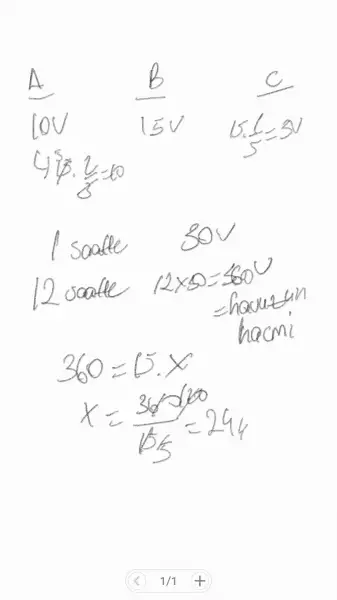 A B C
10V 15V 15.1/5=3V
15.2/3=10
1 saatte 30V
12 saatte 12x30=360V
=havuzun
hacmi
360=15.X
X=360/15=24
1/1